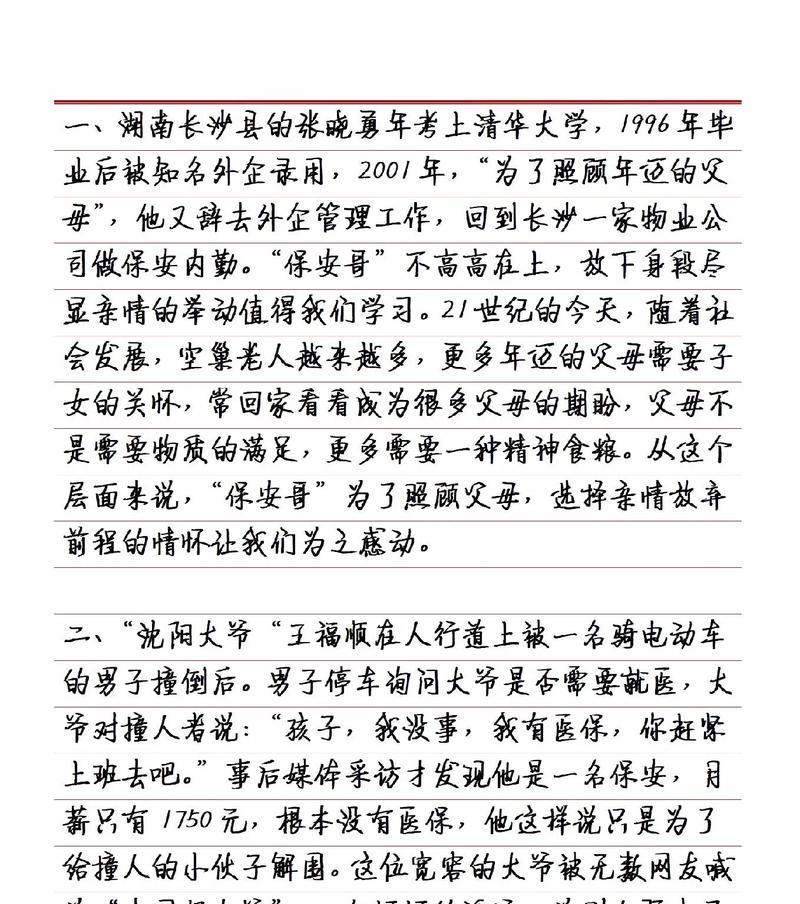 一、湖南长沙县的张晓勇年考上清华大学，1996年毕
业后被知名外企录用，2001年，“为了照顾年迈的父
母”，他又辞去外企管理工作，回到长沙一家物业公
司做保安内勤。“保安哥”不高高在上，放下身段尽
显亲情的举动值得我们学习。21世纪的今天，随着社
会发展，空巢老人越来越多，更多年迈的父母需要子
女的关怀，常回家看看成为很多父母的期盼，父母不
是需要物质的满足，更多需要一种精神食粮。从这个
层面来说，“保安哥”为了照顾父母，选择亲情放弃
前程的情怀让我们为之感动。
二、“沈阳大爷“王福顺在人行道上被一名骑电动车
的男子撞倒后。男子停车询问大爷是否需要就医，大
爷对撞人者说：“孩子，我没事，我有医保，你赶紧
上班去吧。”事后媒体采访才发现他是一名保安，月
薪只有1750元，根本没有医保，他这样说只是为了
给撞人的小伙子解围。这位宽容的大爷被无数网友喊